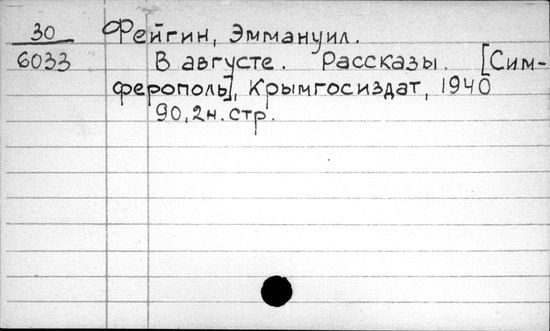 30 Фейгин, Эммануил.
6033 В августе. Рассказы. [Сим-
ферополь], Крымгосиздат, 1940
90,2н.стр.